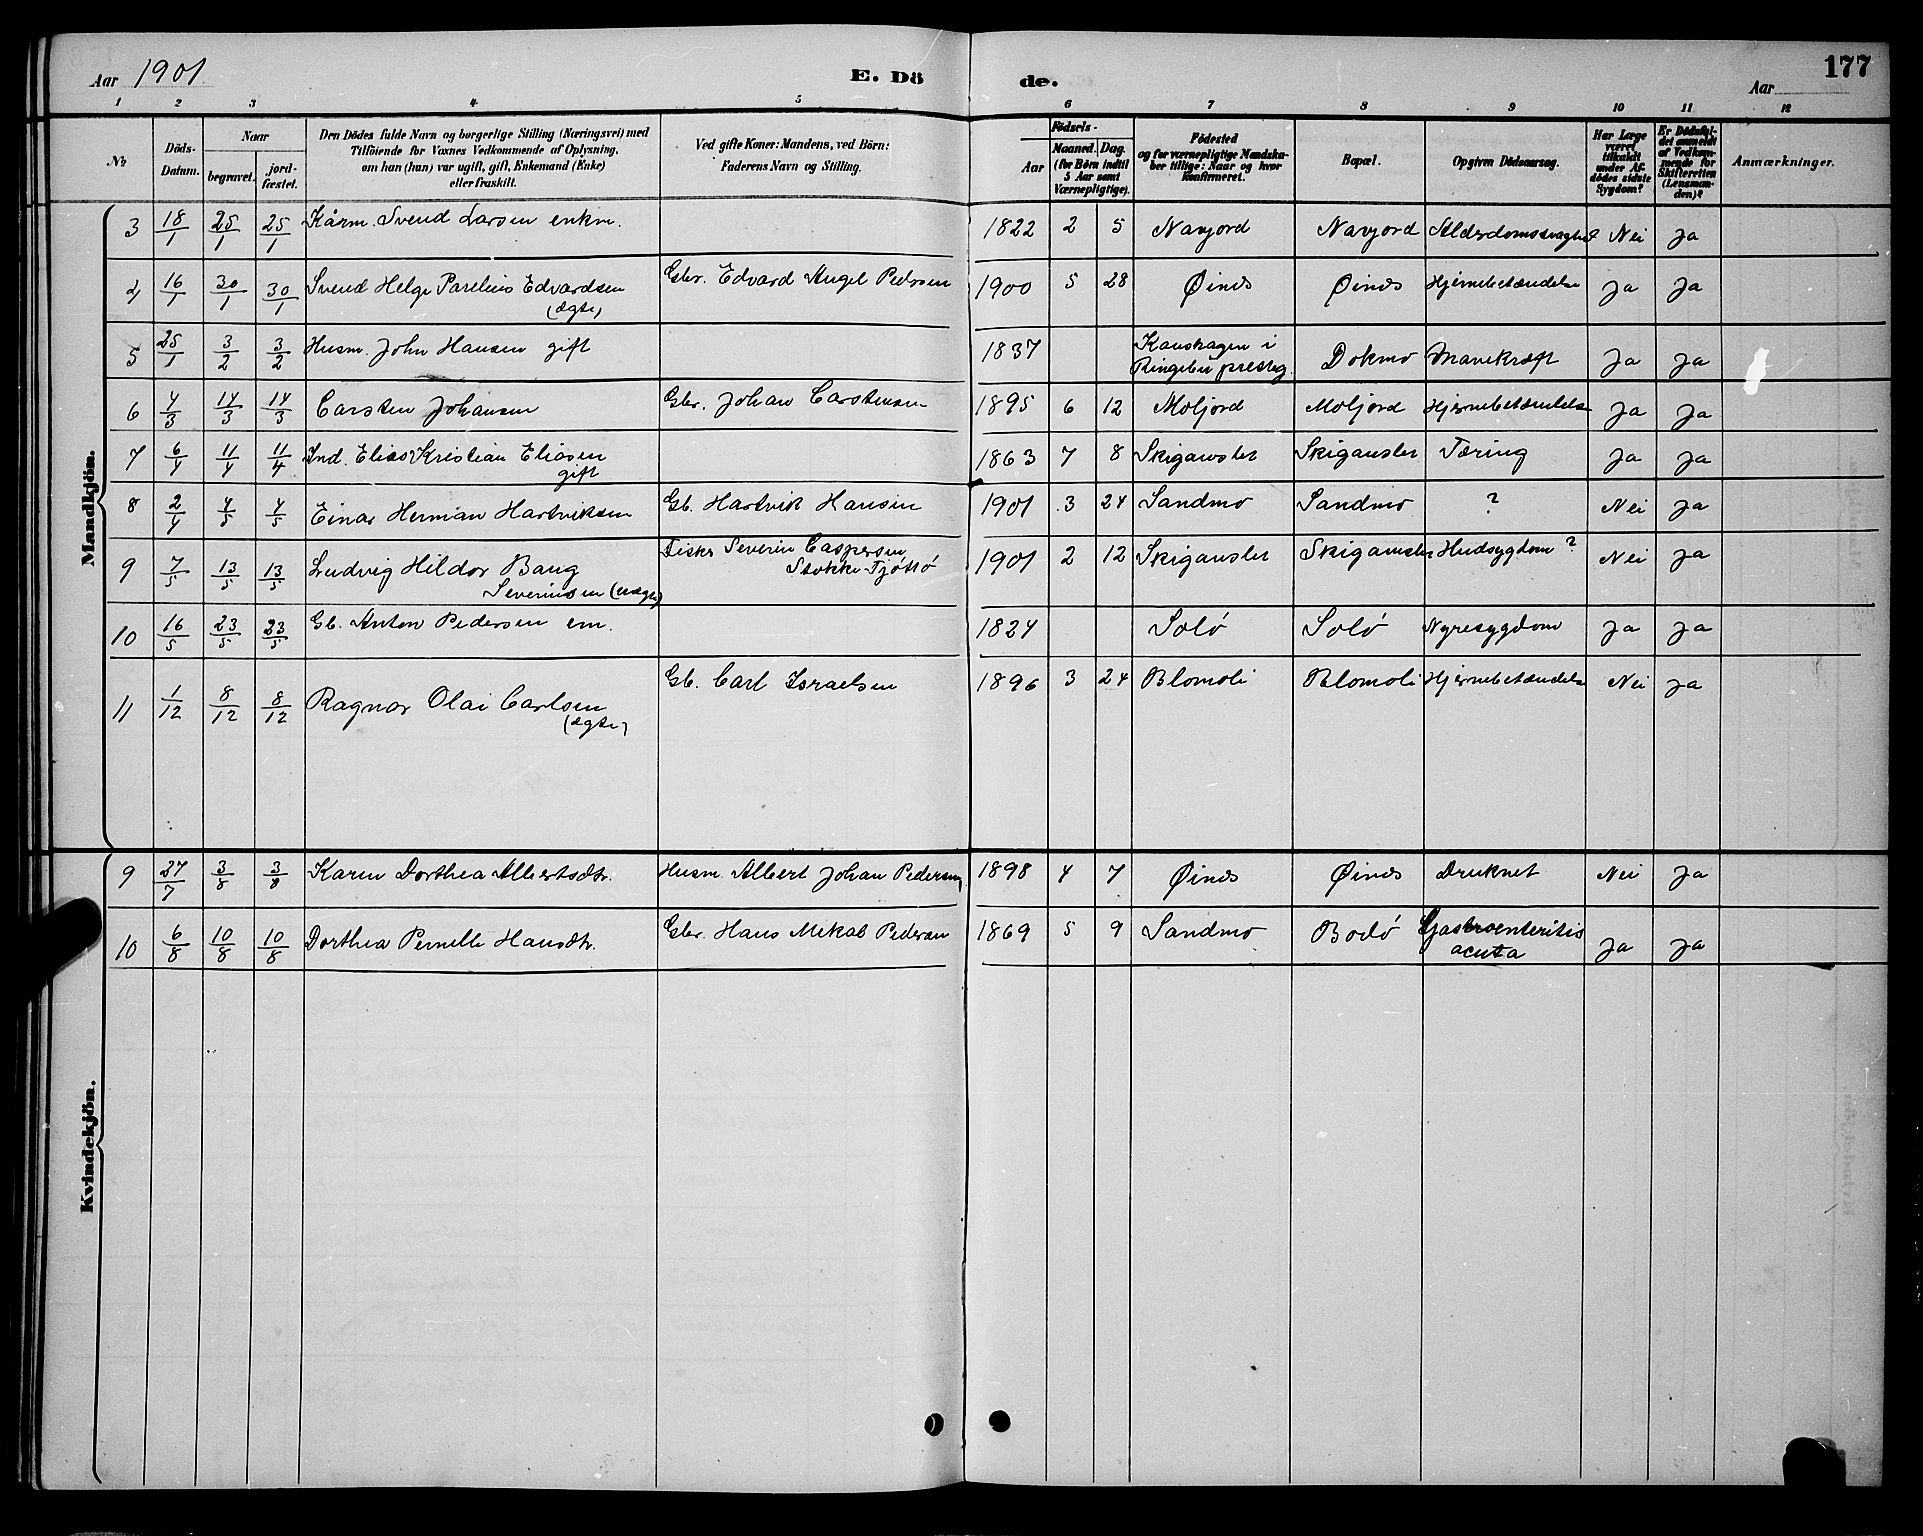 Aar 1901 E. Dö de. Aar 177
1 2 3 4 5 6 7 8 9 10 11 12
No
Döds-Datum.
Naar
begravet.
jord-fæstet.
Den Dödes fulde Navn og borgerlige Stilling (Næringsvei) med
Tilföiende for Voxnes Vedkommende af Oplysning,
om han (hun) var ugift, gift, Enkemand (Enke)
eller fraskilt.
Ved gifte Koner: Mandens, ved Börn:
Faderens Navn og Stilling.
Födsels-
Aar
Maaned. Dag.
(for Börn indtil
5 Aar samt
Værnepligtige).
Födested
og for værnepligtige Mandska-
ber tillige: Naar og hvor
konfirmeret.
Bopæl.
Opgiven Dödsaarsag.
Har Læge
været
tilkaldt
under Af-
dödes sidste
Sygdom?
Er Dödsfal-
det anmeldt
af Vedkom-
mende for
Skifteretten
(Lensman-
den)?
Anmærkninger.
Mandkjön.
3 18/1 25/1 25/1 Kårm. Svend Larsen enkm. 1822 2 5 Navjord Navjord Alderdomssvaghet Nei Ja
4 16/1 30/1 30/1 Svend Helge Parelius Edvardsen Gbr. Edvard Angel Pedersen 1900 5 28 Øines Øines Hjernebetændelse Ja Ja
(ægte)
5 25/1 3/2 3/2 Husm. John Hansen gift 1837 Kaushagen i Dokmo Mavekræft Ja Ja
Ringebu presteg.
6 4/3 14/3 14/3 Carsten Johansen Gbr. Johan Carstensen 1895 6 12 Moljord Moljord Hjernebetændelse Ja Ja
7 6/4 11/4 11/4 Ind. Elias Kristian Eliasen 1863 7 8 Skigansler Skigansler Tæring Ja Ja
gift
8 2/4 4/5 4/5 Einar Herman Hartviksen Gb. Hartvik Hansen 1901 3 24 Sandmo Sandmo ? Nei Ja
9 7/5 13/5 13/5 Ludvig Hildor Bang Fisker Severin Caspersen 1901 2 12 Skigansler Skigansler Hudsygdom? Nei Ja
Severinsen (uægte) Stokke Tjøttø
10 16/5 23/5 23/5 Gb. Anton Pedersen em. 1824 Solø Solø Nyresygdom Ja Ja
11 1/12 8/12 8/12 Ragnar Olai Carlsen Gb. Carl Israelsen 1896 3 24 Blomoli Blomoli Hjernebetændelse Nei Ja
(ægte)
Kvindekjön.
9 27/7 3/8 3/8 Karen Dorthea Albertsdtr. Husm. Albert Johan Pedersen 1898 4 7 Øines Øines Druknet Nei Ja
10 6/8 10/8 10/8 Dorthea Pernille Hansdtr. Gbr. Hans Mikal Pedersen 1869 5 9 Sandmo Bodø Gastroenteritis Ja Ja
acuta